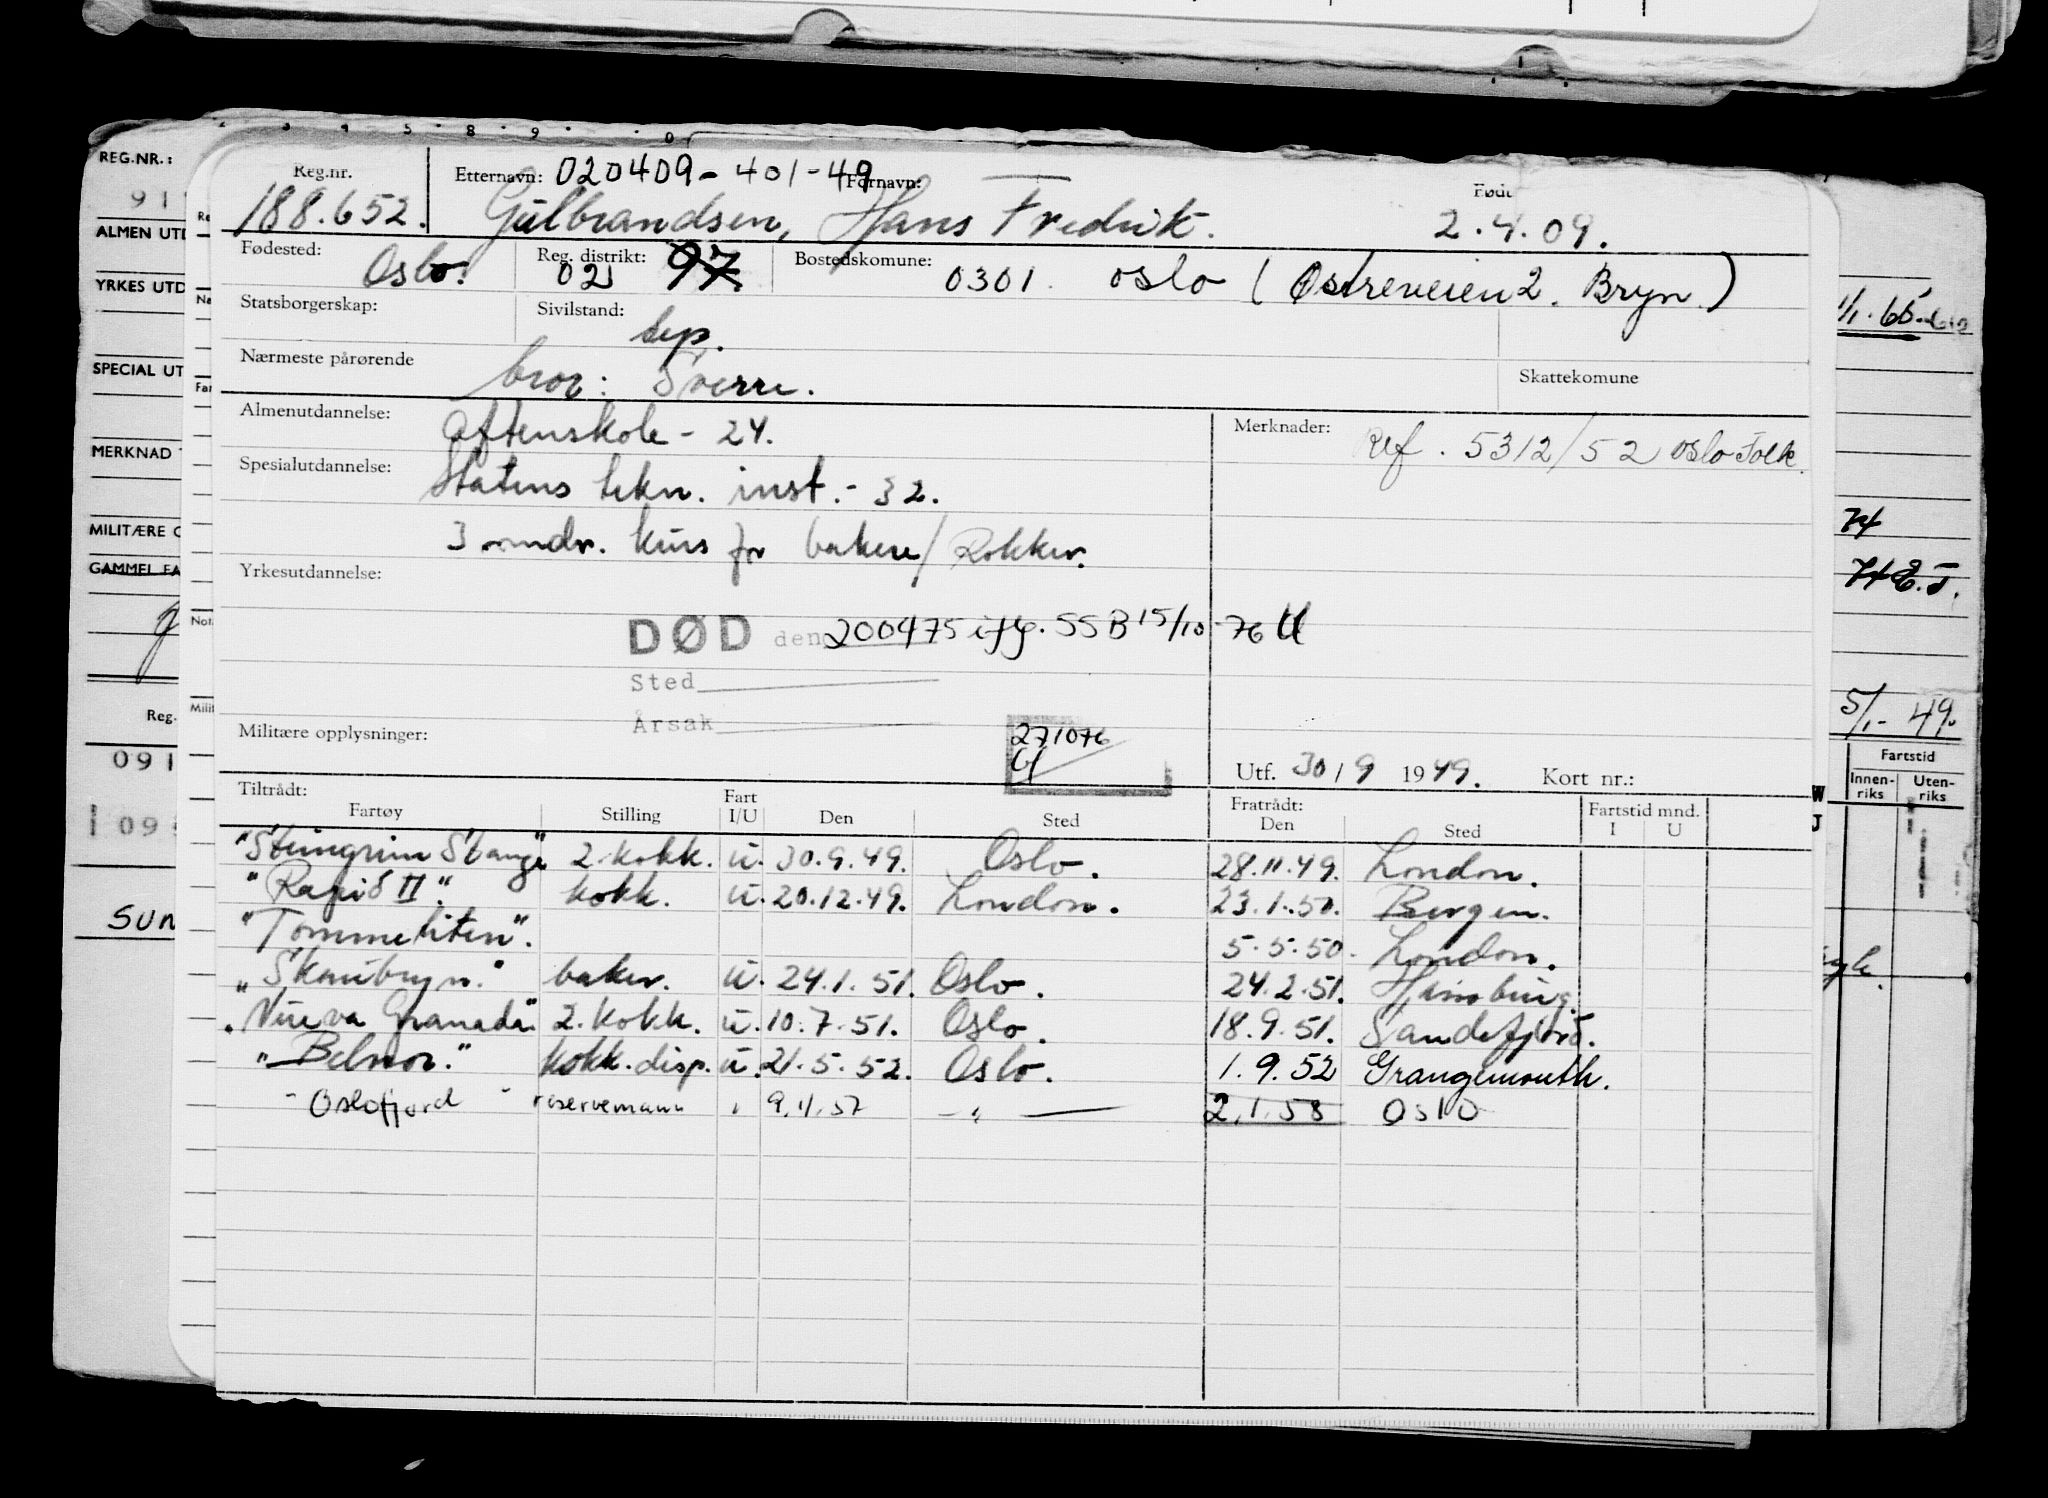 REG.NR.:
Reg.nr. Etternavn: 020409-401-49 Fornavn: Født
188.652. Gulbrandsen, Hans Fredrik. 2.4.09.
Fødested: Oslo. Reg. distrikt: 02 97 Bostedskommune: 0301 Oslo (Østreveien 2. Bryn.)
Statsborgerskap: Sivilstand: sep.
Nærmeste pårørende bror: Sverre. Skattekomune
Almenutdannelse: Aftenskole - 24. Merknader: Ref. 5312/52 Oslo Folk.
Spesialutdannelse: Statens tekn. inst. - 32.
3 mndr. kurs for bakere/Kokker.
Yrkesutdannelse:
DØD den 200475 iflg. SSB 15/10-76
Sted
Årsak
Militære opplysninger: 271076
Utf. 30/9 1949. Kort nr.:
Tiltrådt: Fratrådt: Fartstid mnd.
Fartøy Stilling Fart I/U Den Sted Den Sted I U
"Steingrim Stange" 2. kokk. u. 30.9.49. Oslo. 28.11.49. London.
"Rapid II". kokk. u. 20.12.49. London. 23.1.50. Bergen.
"Tommeliten". 5.5.50. London.
"Skaubryn." baker. u. 24.1.51. Oslo. 24.2.51. Hamburg.
"Nueva Granada" 2. kokk. u. 10.7.51. Oslo. 18.9.51. Sandefjord.
"Belnor." kokk.disp. u. 21.5.52. Oslo. 1.9.52 Grangemouth.
- Oslofjord - reservemann " 9.11.57 - " - 2.1.58 Oslo
ALMEN UTD
YRKES UTD
SPECIAL UT
MERKNAD
MILITÆRE
GAMMEL FA
Reg.
091
SUN
1/1.65
74
5/1-49.
Fartstid
Innen-riks Uten-riks
W
J